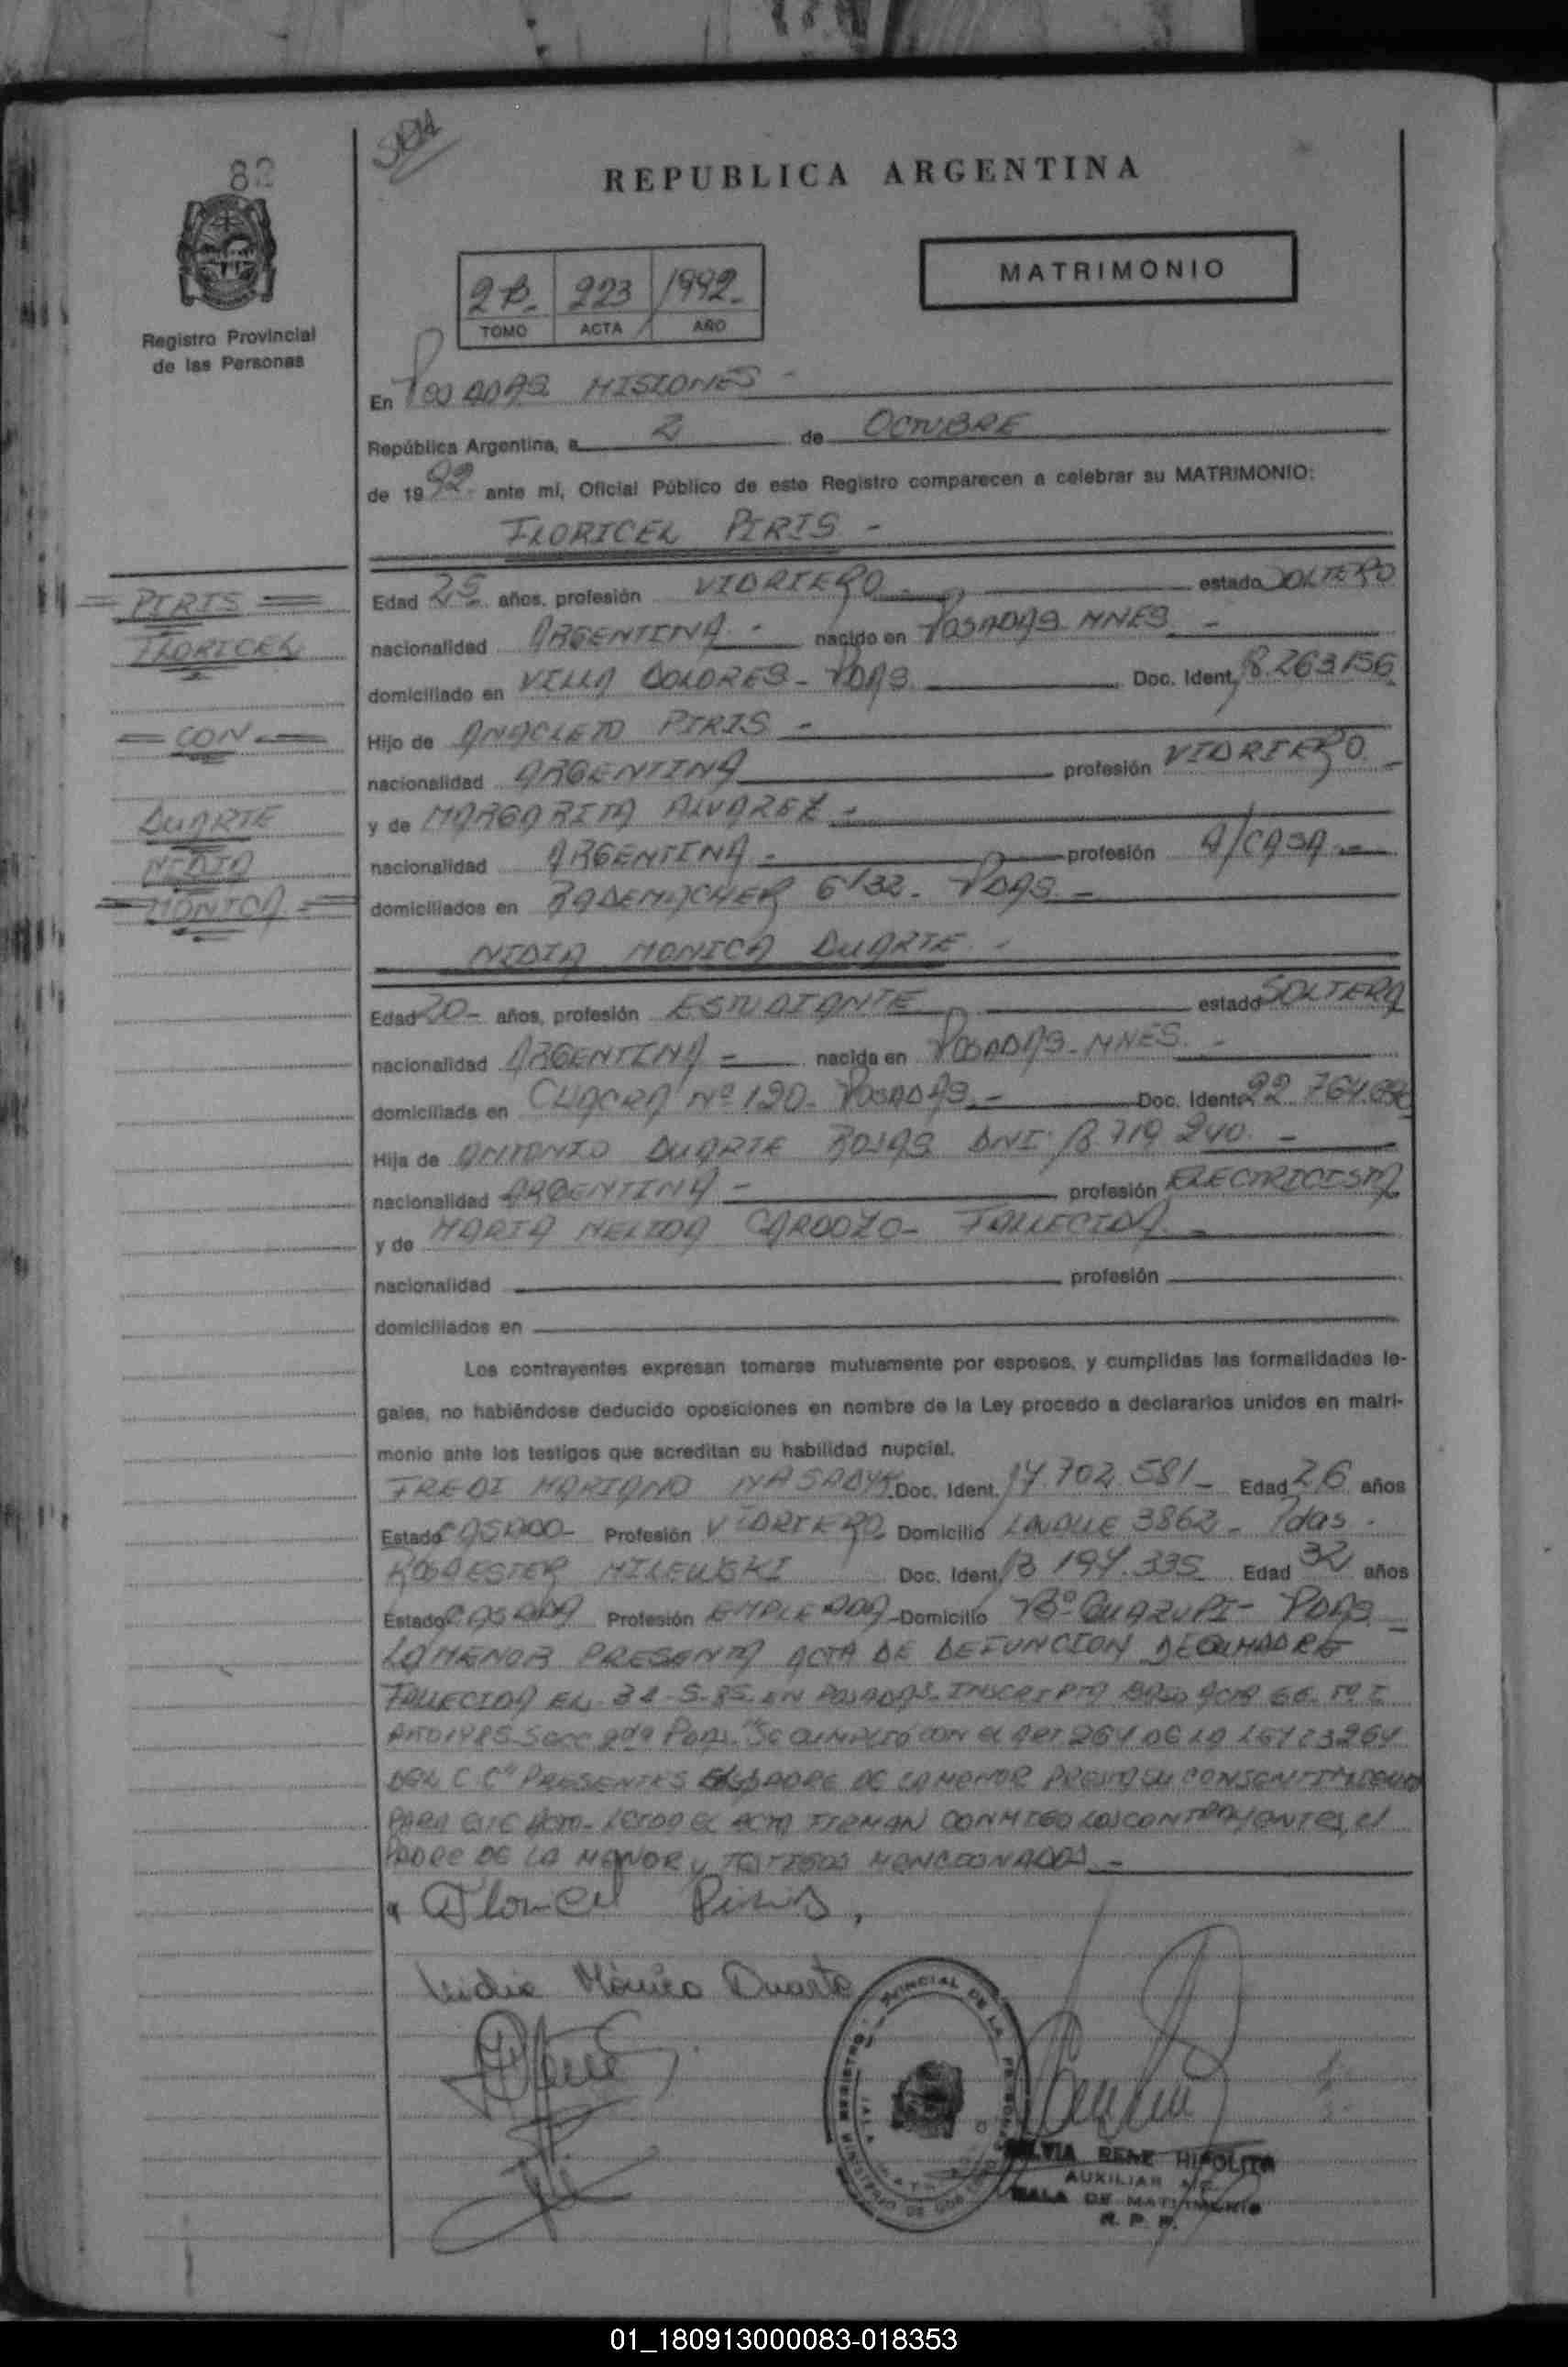 82
REPUBLICA ARGENTINA
MATRIMONIO
2 B- 223 1992-
TOMO ACTA AÑO
Registro Provincial
de las Personas
En POSADAS MISIONES -
República Argentina, a 2 de OCTUBRE
de 1992 ante mí, Oficial Público de este Registro comparecen a celebrar su MATRIMONIO:
FLORICEL PIRIS -
PIRIS
FLORICEL
CON
DUARTE
NIDIA
MONICA
Edad 25 años, profesión VIDRIERO estado SOLTERO
nacionalidad ARGENTINA - nacido en POSADAS MNES -
domiciliado en VILLA DOLORES - PDAS Doc. Ident. 18.263.156
Hijo de ANACLETO PIRIS -
nacionalidad ARGENTINA profesión VIDRIERO -
y de MARGARITA ALVAREZ -
nacionalidad ARGENTINA - profesión A/CASA -
domiciliados en RADEMACHER 6132 - PDAS -
NIDIA MONICA DUARTE -
Edad 20- años, profesión ESTUDIANTE estado SOLTERA
nacionalidad ARGENTINA - nacida en POSADAS - MNES -
domiciliada en CHACRA Nº 120 - POSADAS - Doc. Ident. 22.764.
Hija de ANTONIO DUARTE ROJAS DNI 18.719.240 -
nacionalidad ARGENTINA - profesión ELECTRICISTA
y de MARIA NELIDA CARDOZO - FALLECIDA -
nacionalidad profesión
domiciliados en
Los contrayentes expresan tomarse mutuamente por esposos, y cumplidas las formalidades le-
gales, no habiéndose deducido oposiciones en nombre de la Ley procedo a declararlos unidos en matri-
monio ante los testigos que acreditan su habilidad nupcial.
FREDI MARIANO Doc. Ident. 17.702.581 - Edad 26 años
Estado CASADO - Profesión VIDRIERO Domicilio 3862 - Pdas -
ROSA ESTER MILEWSKI Doc. Ident. 13 194.335 Edad 32 años
Estado CASADA Profesión EMPLEADA Domicilio Bº GUAZUPI - PDAS -
LA MENOR PRESENTA ACTA DE DEFUNCION DE SU MADRE
FALLECIDA EL 31-5-85 EN POSADAS INSCRIPTA BAJO ACTA 66 Tº I
AÑO 1985 Secc 2da Pdas. "Se CUMPLIO CON el ART 264 DE LA LEY 23264
DEL C Cº PRESENTES EL PADRE DE LA MENOR PRESTA SU CONSENTIMIENTO
PARA ESTE ACTO - LEIDA EL ACTA FIRMAN CONMIGO LOS CONTRAYENTES, el
PADRE DE LA MENOR y TESTIGOS MENCIONADOS -
Floricel Piris
Nidia Mónica Duarte
SILVIA RENE HIPOLITA
AUXILIAR
SALA DE MATRIMONIO
R. P. P.
01_180913000083-018353